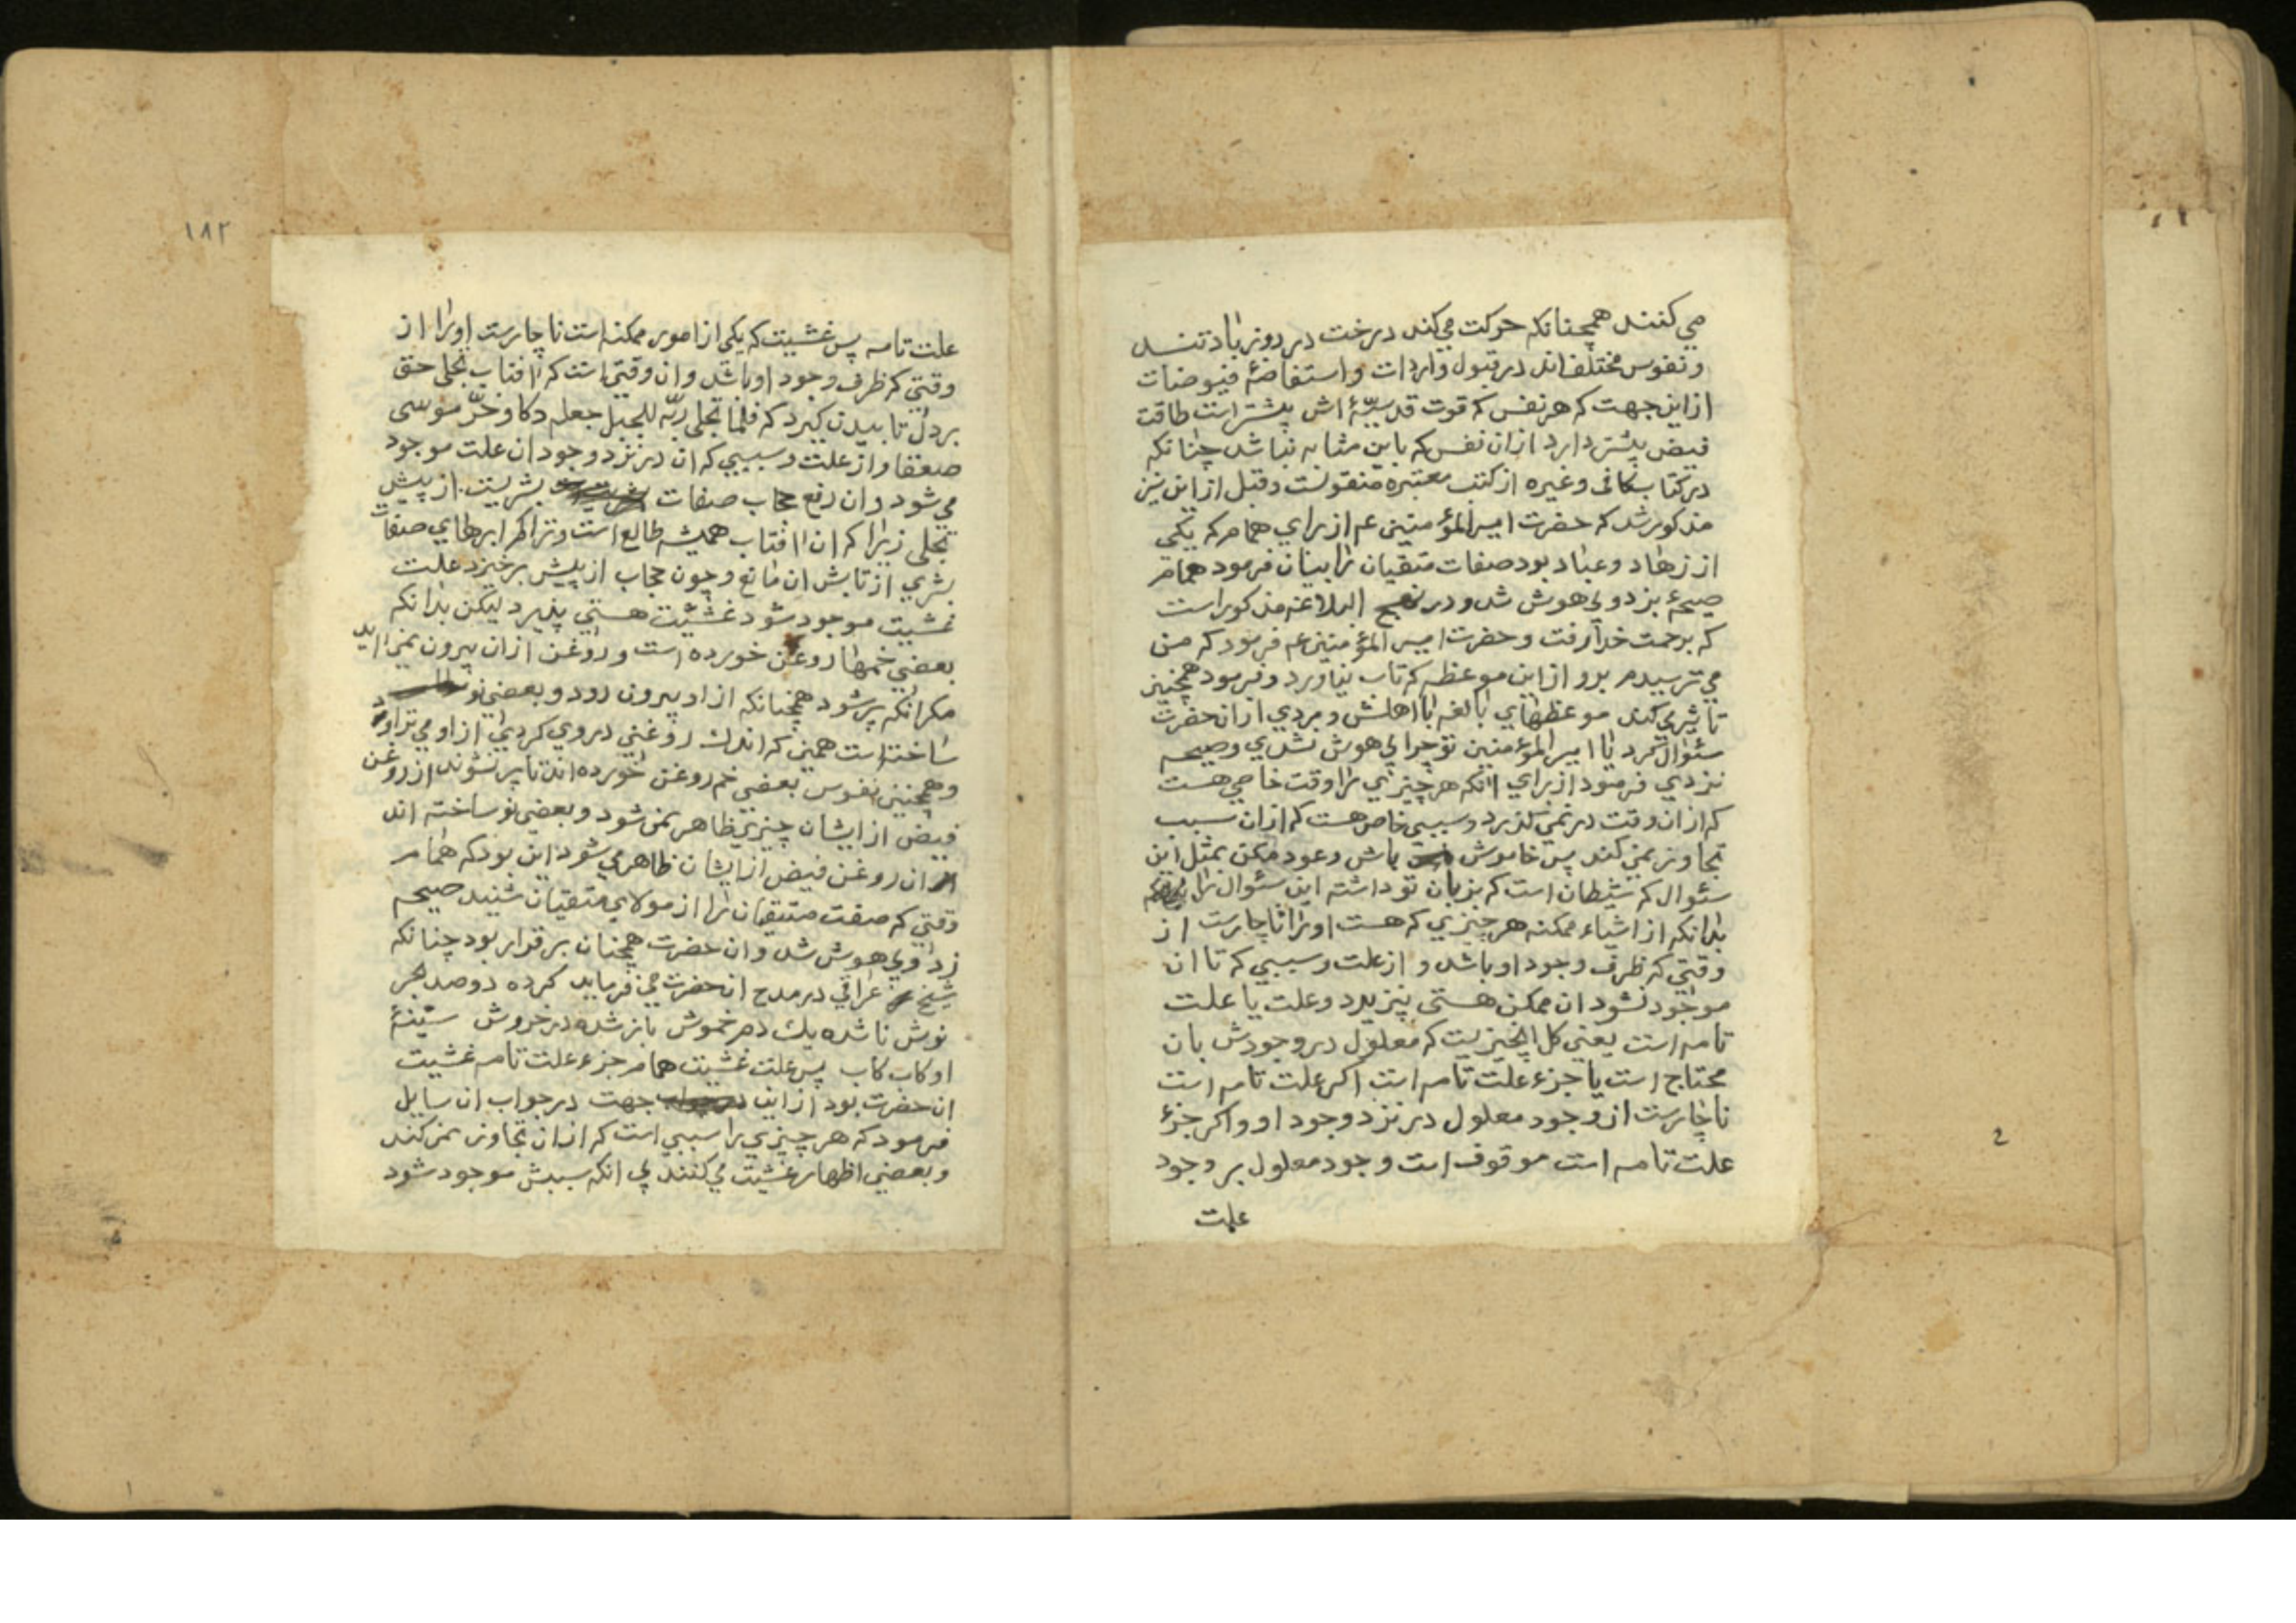 می کنند همچنانکه حرکت می کند درخت در روز باد تند
و نفوس مختلف اند در قبول واردات و استفاضهٔ فیوضات
از این جهت که هر نفس که قوت قدسیّهٔ اش بیشتر است طاقت
فیض بیشتر دارد از ان نفس که باین مثابه نباشد چنانکه
در کتاب کافی و غیره از کتب معتبره منقولست و قبل از این نیز
مذکور شد که حضرت امیر المؤمنین عم از برای همام که یکی
از زهاد و عباد بود صفات متقیان را بیان فرمود همام
صیحهٔ بزد و بی هوش شد و در نهج البلاغه مذکور است
که برحمت خدا رفت و حضرت امیر المؤمنین عم فرمود که من
می ترسیدم برو از این موعظه که تاب نیاورد و فرمود همچنین
تاثیر می کند موعظهای بالغه با اهلش و مردی از ان حضرت
سئوال کرد یا امیر المؤمنین تو چرا بی هوش نشدی و صیحه
نزدی فرمود از برای انکه هر چیزی را وقت خاصی هست
که از ان وقت در نمی گذرد و سببی خاص هست که از ان سبب
تجاوز نمی کند پس خاموش باش و عود مکن بمثل این
سئوال که شیطان است که بزبان تو داشته این سئوال را
بدانکه از اشیاء ممکنه هر چیزی که هست او را ناچارست از
وقتی که ظرف وجود او باشد و از علت و سببی که تا ان
موجود نشود ان ممکن هستی نپزیرد و علت یا علت
تامه است یعنی کل انچیزیست که معلول در وجودش بان
محتاج است یا جزء علت تامه است اکر علت تامه است
ناچارست از وجود معلول در نزد وجود او و اکر جزء
علت تامه است موقوف است وجود معلول بر وجود
علت
۱۸۲
علت تامه پس غشیت که یکی از امور ممکنه است ناچارست او را از
وقتی که ظرف وجود او باشد و ان وقتی است که افتاب تجلی حق
بر دل تابیدن کیرد که فلما تجلی ربّه للجبل جعله دکا و خرّ موسی
صعقا و از علت و سببی که ان در نزد وجود ان علت موجود
می شود و ان رفع حجاب صفات بشریت از پیش
تجلی زیرا که ان افتاب همیشه طالع است و تراکم ابرهای صفات
بشری از تابش ان مانع و چون حجاب از پیش برخیزد علت
غشیت موجود شود غشیت هستی پذیرد لیکن بدانکه
بعضی خمها روغن خورده است و روغن از ان بیرون نمی اید
مکر انکه پر شود همچنانکه از او بیرون رود و بعضی نو
ساخته است همین که اندک روغنی در وی کردی از او می تراود
و همچنین نفوس بعضی خم روغن خورده اند تا پر نشوند از روغن
فیض از ایشان چیزی ظاهر نمی شود و بعضی نو ساخته اند
ان روغن فیض از ایشان ظاهر می شود این بود که همام
وقتی که صفت متقیان را از مولای متقیان شنید صیحه
زد و بی هوش شد و ان حضرت همچنان بر قرار بود چنانکه
شیخ عراقی در مدح ان حضرت می فرماید کرده دو صد بحر
نوش نا شده یک دم خموش باز شده در خروش سینهٔ
او کاب کاب پس علت غشیت همام جزء علت تامه غشیت
ان حضرت بود از این جهت در جواب ان سایل
فرمود که هر چیزی را سببی است که از ان تجاوز نمی کند
و بعضی اظهار غشیت می کنند بی انکه سببش موجود شود